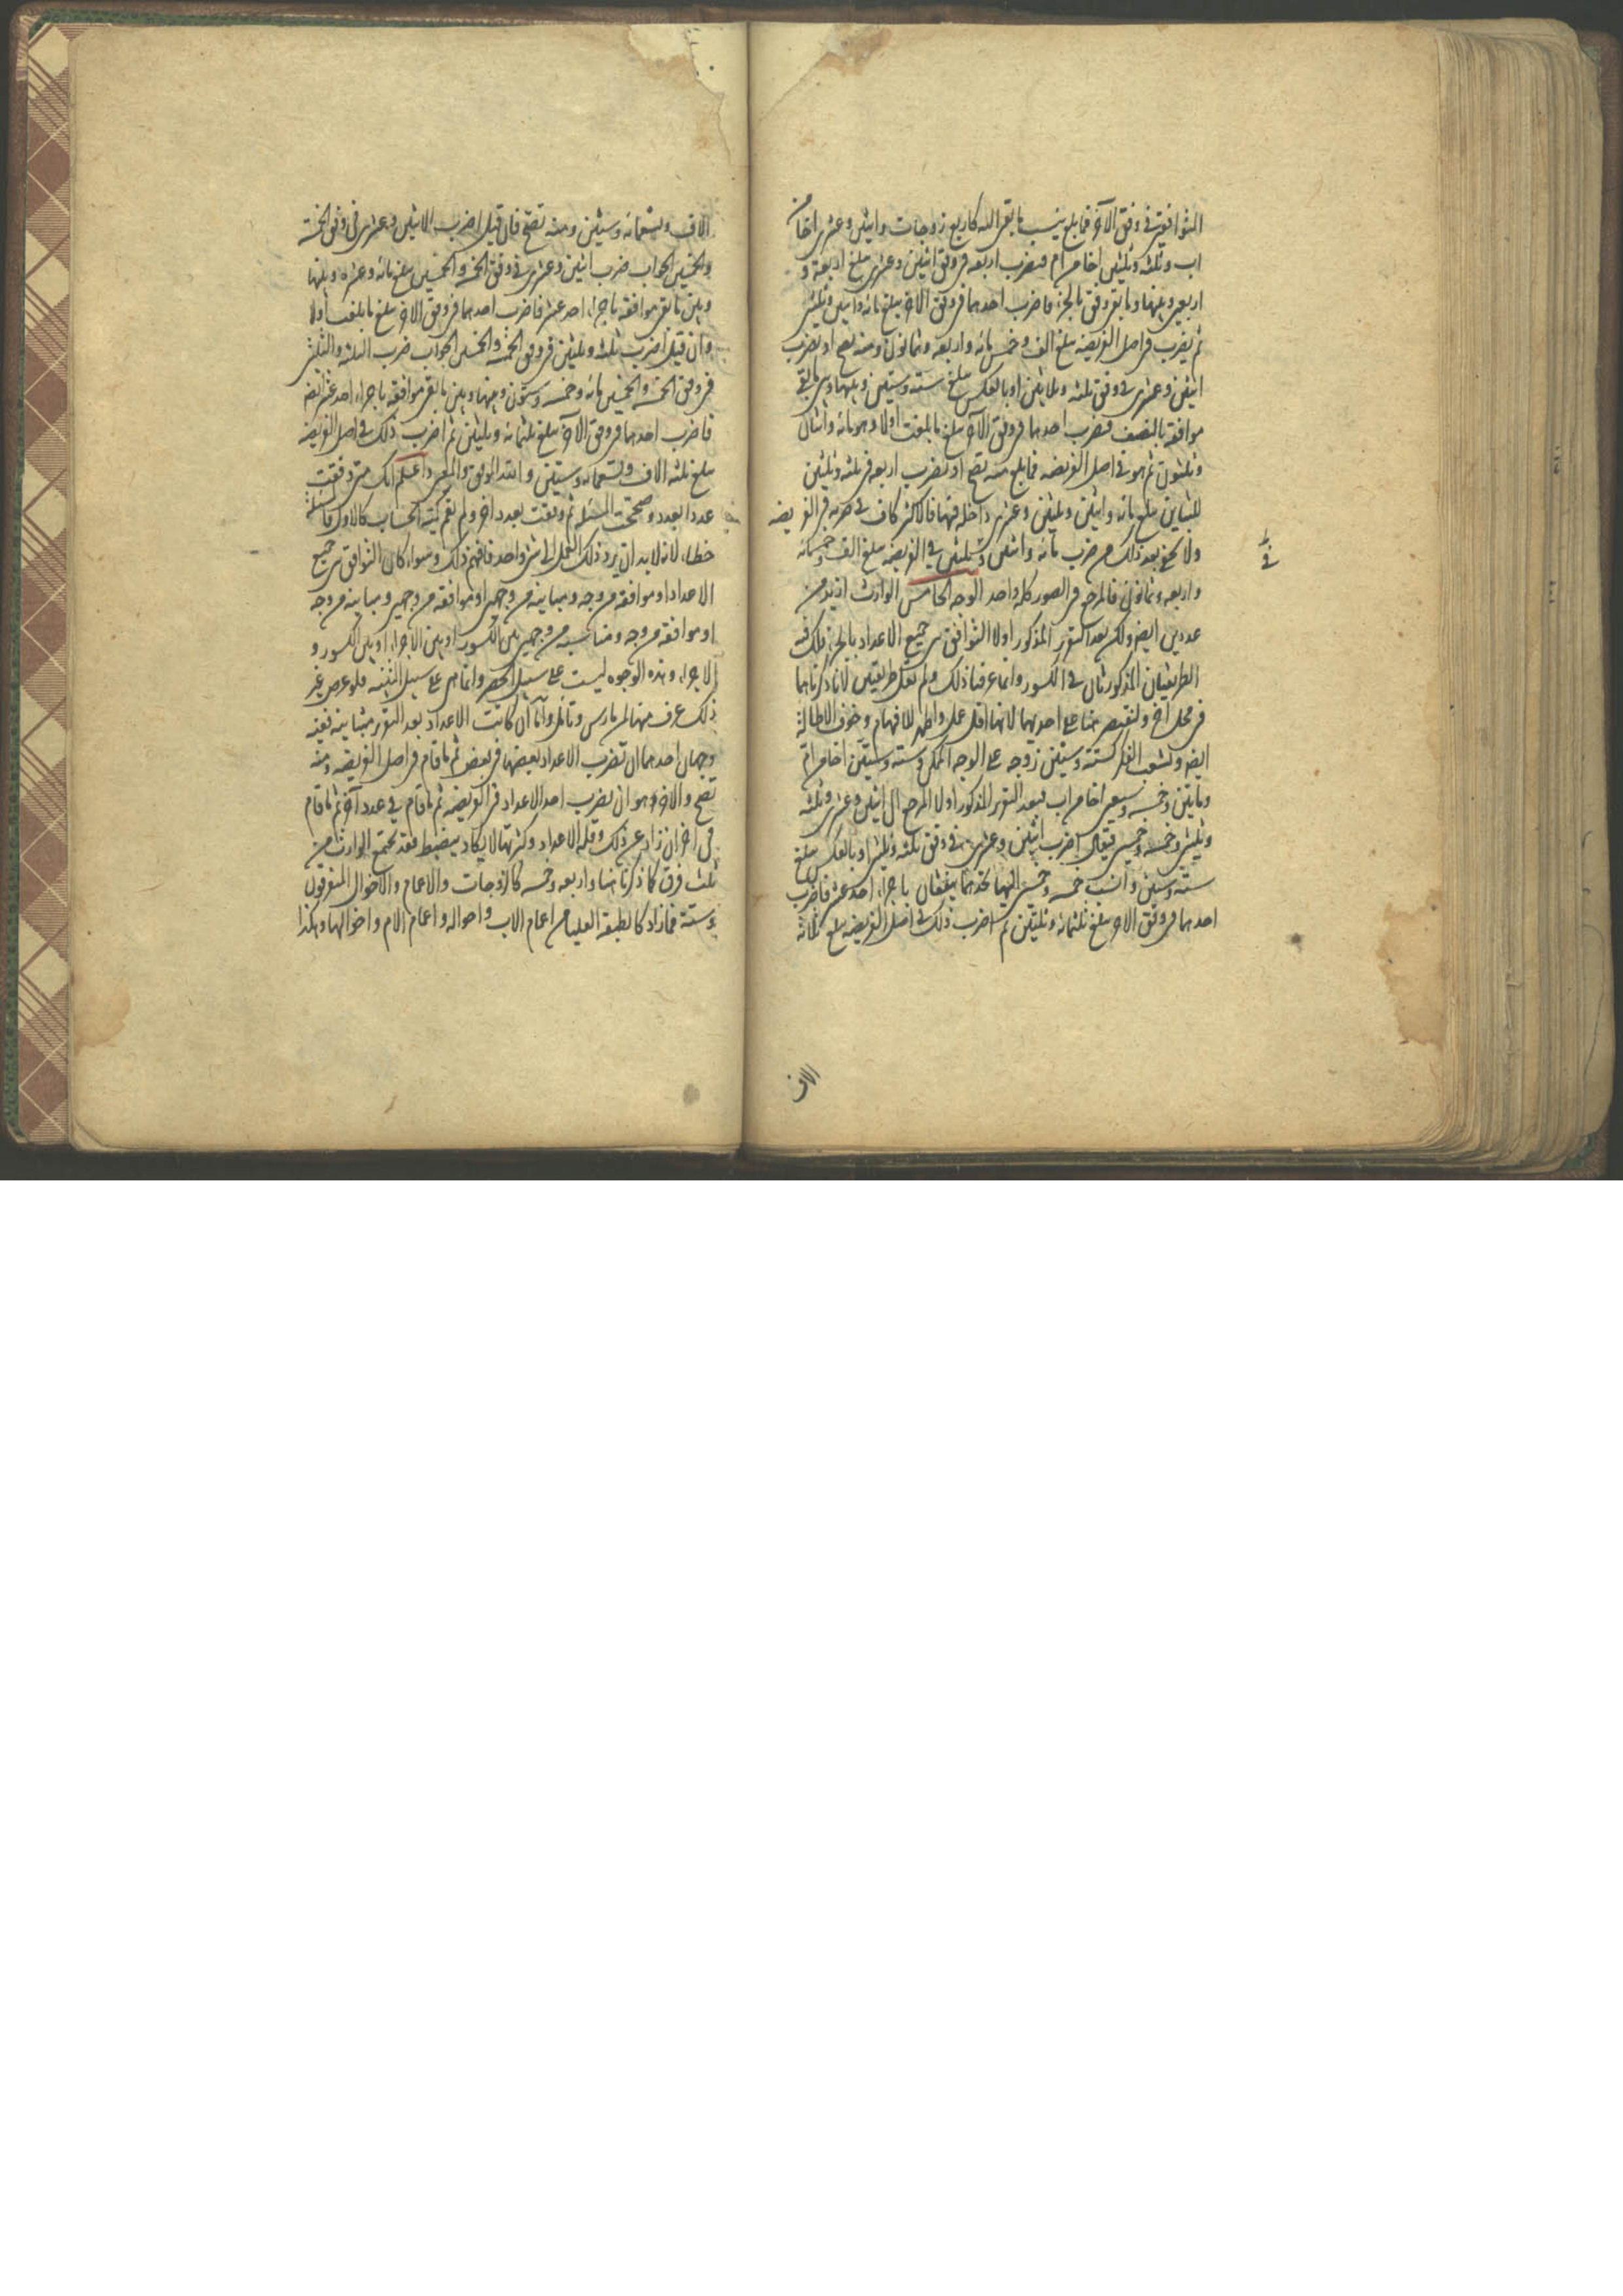 التوافق في وفق الآخر فما بلغ ينسب ما بقي اليه كاربع زوجات واثنين وعشرين اخا من
اب وثلثه وثلثين اخا من ام فيضرب اربعه في وفق اثنين وعشرين مبلغ اربعة و
اربعين وبينها وما بقي وفق بالجزء فاضرب احدهما في وفق الآخر يبلغ مائه واثنين وثلثين
ثم يضرب في اصل الفريضه مبلغ الف وخمس مائه واربعه وثمانون ومنه تصح او تضرب
اثنين وعشرين في وفق ثلثه وثلاثين او بالعكس مبلغ سته وستين وبينها وبين ما بقي
موافقه بالنصف فيضرب احدهما في وفق الآخر يبلغ ما بلغت اولا وهو مائه واثنان
وثلثون ثم هو في اصل الفريضه فما بلغ منه تصح او تضرب اربعه في ثلثه وثلثين
للتباين مبلغ مائه واثنين وثلثين وعشرين داخله فيها فالاكثر كاف في ضربه في الفريضه
ولا يخفى بعد ذلك من ضرب مائه واثنين وثلثين في الفريضه مبلغ الف وخمسمائه
واربعه وثمانون فالمرجع في الصور كله واحد الوجه الخامس الوارث ازيد من
عددين ايضا ولكن بعد التقرير المذكور اولا التوافق بين جميع الاعداد بالجزء فلك فيه
الطريقان المذكورتان في الكسور وانما عرفنا ذلك ولم نقل طريقتين لانا ذكرناها
في محل آخر ولنقتصر هنا على احديهما لانها اقل عمل واظهر للافهام وخوف الاطالة
ايضا ولشعب الفكر كستة وستين زوجه على الوجه الممكن وسته وستين اخا من ام
ومايتين وخمسه وسبعين اخا من اب فبعد التقرير المذكور اولا المرجع الى اثنين وعشرين وثلثه
وثلثين وخمسه وخمسين فيقال اضرب اثنين وعشرين في وفق ثلثه وثلثين او بالعكس مبلغ
ستة وستين وانسب خمسه وخمسين اليها تجدهما يتفقان باجزاء احد عشر فاضرب
احدهما في وفق الآخر يبلغ ثلثمائه وثلثين ثم اضرب ذلك في اصل الفريضه يبلغ ثلاثة
الاف
الاف وتسعمائه وستين ومنه تصح فان قيل اضرب الاثنين وعشرين في وفق الخمسة
والخمسين الجواب ضرب اثنين وعشرين في وفق الخمسه والخمسين مبلغ مائه وعشره وبينها
وبين ما بقي موافقه باجزاء احد عشر فاضرب احدهما في وفق الآخر مبلغ ما بلغت اولا
وان قيل اضرب ثلثه وثلثين في وفق الخمسه والخمسين الجواب ضرب الثلثه والثلثين
في وفق الخمسه والخمسين مائه وخمسه وستون وبينها وبين ما بقي موافقه باجزاء احد عشر ايضا
فاضرب احدهما في وفق الآخر مبلغ ثلثمائه وثلثين ثم اضرب ذلك في اصل الفريضه
مبلغ ثلثه الاف وتسعمائه وستين والله الموفق والمعين واعلم انك متى وفقت
عددا بعدد وصححت المسئله ثم وفقت بعدد اخر ولم يقم كميه الحساب كالاول فالمسئلة
خطاء لانه لا بد ان يرد ذلك العمل الى شئ واحد فافهم ذلك وسواء كان التوافق بين جميع
الاعداد او موافقه من وجه ومباينه من وجهين او موافقه من وجهين ومباينه من وجه
او موافقه من وجه ومناسبه من وجهين بين الكسور او بين الاجزاء او بين الكسور و
الاجزاء وهذه الوجوه ليست على سبيل الحصر وانما هي على سبيل التنبيه فلو عرض غير
ذلك عرف منها لمن مارس وتامل واما ان كانت الاعداد بعد التقرير متباينه ففيه
وجهان احدهما ان تضرب الاعداد بعضها في بعض ثم ما قام في اصل الفريضه ومنه
تصح والآخر وهو ان يضرب احد الاعداد في الفريضه ثم ما قام في عدد آخر ثم ما قام
في اخر ان زاد عن ذلك وقله الاعداد وكثرتها لا يكاد ينضبط فقد يجتمع الوارث من
ثلث فرق كما ذكرنا هنا واربعه وخمسه كالزوجات والاعمام والاخوال المتفرقون
وستة فما زاد كالطبقه العليا من اعمام الاب واخواله واعمام الام واخوالها وهكذا